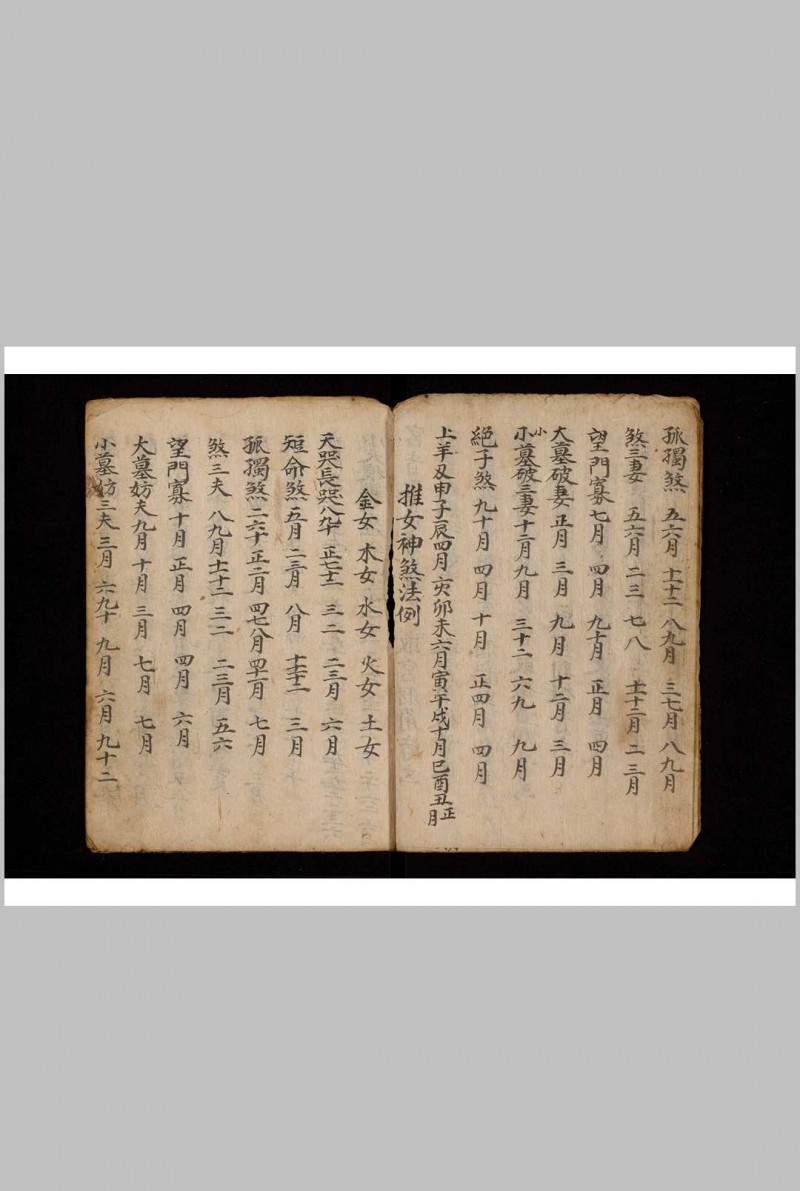 孤獨煞 五六月 十十二 八九月 三七月 八九月
煞三妻 五六月 二三 七八 十十二月 二三月
望門寡 七月 四月 九十月 正月 四月
大墓破妻 正月 三月 九月 十二月 三月
小墓破三妻 十二月 九月 三十二 六九 九月
絕子煞 九十月 四月 十月 正四月 四月
上羊刃申子辰四月 亥卯未六月 寅午戌十月 巳酉丑正月
推女神煞法例
金女 木女 水女 火女 土女
天哭長哭 八九 正七十二 三二 二三月 六月
短命煞 五月 二三月 八月 十二 三月
孤獨煞 二六十 正二月 四七八月 四十二月 七月
煞三夫 八九月 十十二 三二 二三月 五六
望門寡 十月 正月 四月 四月 六月
大墓妨夫 九月 十月 三月 七月 七月
小墓妨三夫 三月 六九十 九月 六月 九十二